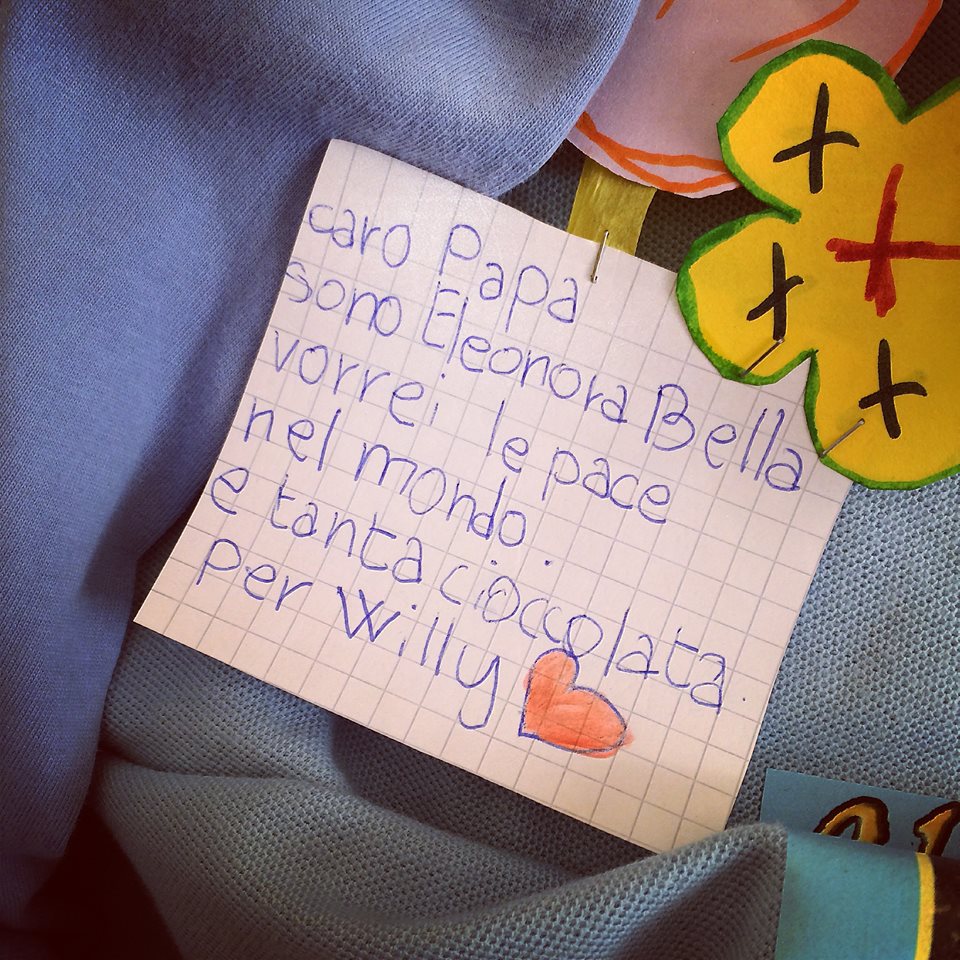 caro Papa
sono Eleonora Bella
vorrei le pace
nel mondo.
e tanta cioccolata.
per Willy